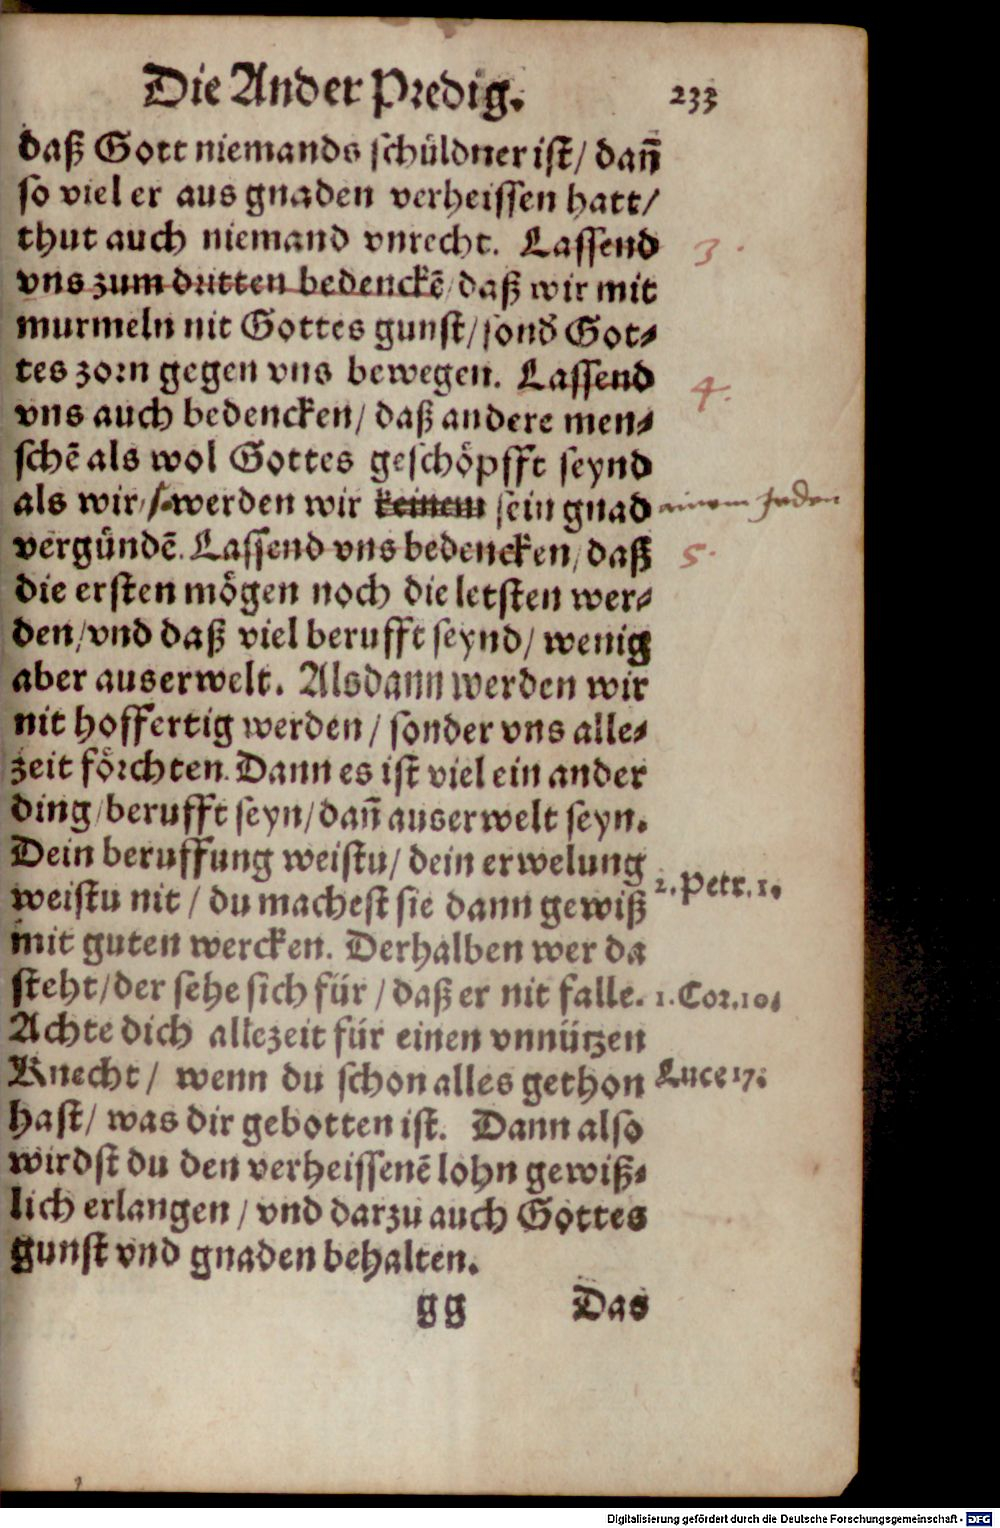 Die Ander Predig. 233
daß Gott niemands schüldner ist/ dañ
so viel er aus gnaden verheissen hatt/
thut auch niemand vnrecht. Lassend 3.
vns zum dritten bedenckē/ daß wir mit
murmeln nit Gottes gunst/ sond̕ Got-
tes zorn gegen vns bewegen. Lassend 4.
vns auch bedencken/ daß andere men-
schē als wol Gottes geschöpfft seynd
als wir/ so werden wir keinem sein gnad einem jeden
vergündē. Lassend vns bedencken/ daß 5.
die ersten mögen noch die letsten wer-
den/ vnd daß viel berufft seynd/ wenig
aber auserwelt. Alsdann werden wir
nit hoffertig werden/ sonder vns alle-
zeit förchten. Dann es ist viel ein ander
ding/ berufft seyn/ dañ auserwelt seyn.
Dein beruffung weistu/ dein erwelung
weistu nit/ du machest sie dann gewiß 2. Petr. 1.
mit guten wercken. Derhalben wer da
steht/ der sehe sich für/ daß er nit falle. 1. Cor. 10.
Achte dich allezeit für einen vnnützen
Knecht/ wenn du schon alles gethon Luce 17.
hast/ was dir gebotten ist. Dann also
wirdst du den verheissenē lohn gewiß-
lich erlangen/ vnd darzu auch Gottes
gunst vnd gnaden behalten.
gg Das
Digitalisierung gefördert durch die Deutsche Forschungsgemeinschaft - DFG